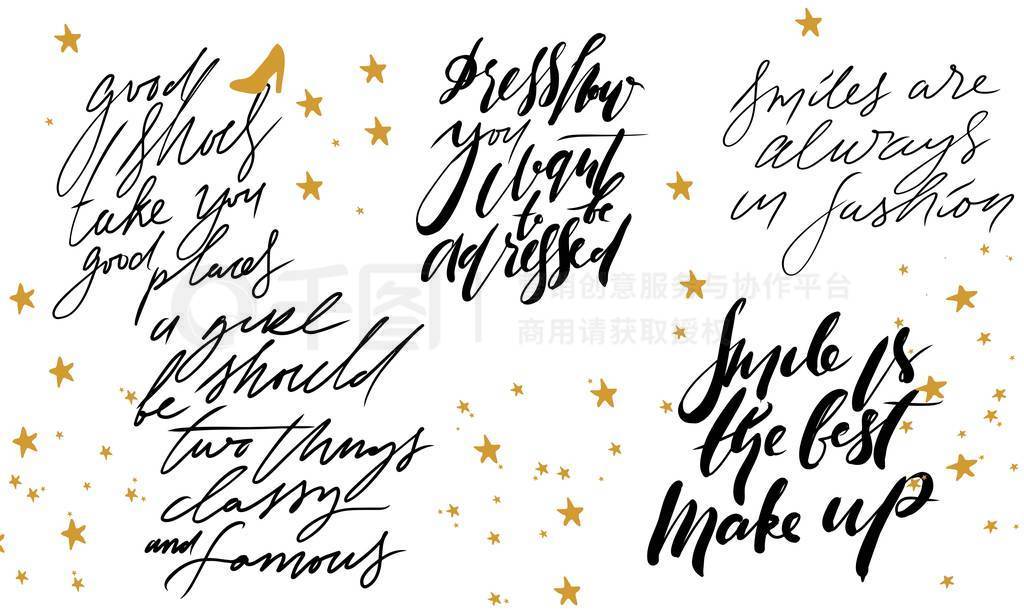 good
shoes
take you
good
places
Dress how
you
want
to be
adressed
Smiles are
always
in fashion
a girl
should
be
two things
classy
and
famous
Smile is
the best
make up
千图
营销创意服务与协作平台
商用请获取授权